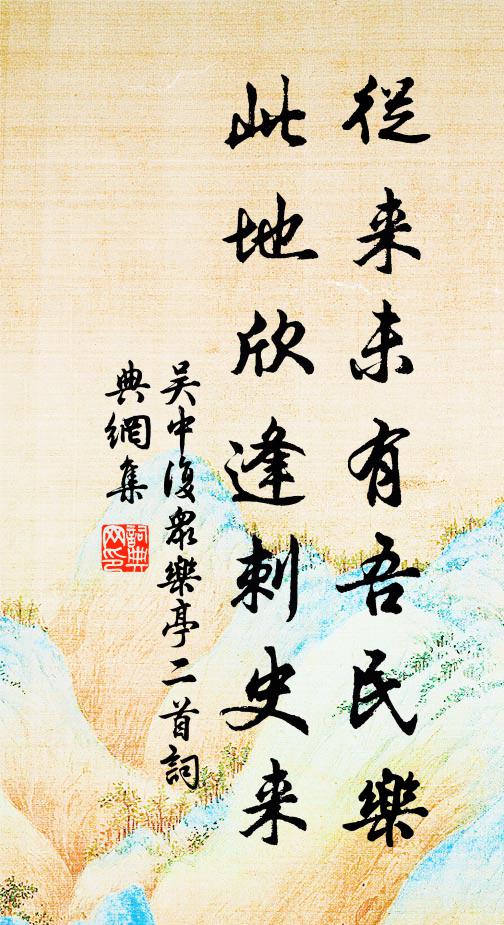 從来未有吾民樂
此地欣逢刺史来
吴中復衆樂亭二首詞
典網集
詞典网印